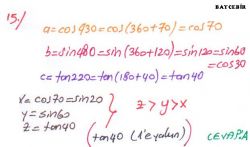 BAY CEBİR
15./
a=cos430=cos(360+70)=cos70
b=sin480=sin(360+120)=sin120=sin60
=cos30
c=tan220=tan(180+40)=tan40
x=cos70=sin20
y=sin60
z=tan40
z>y>x
(tan40 (1'e yakın))
CEVAP A